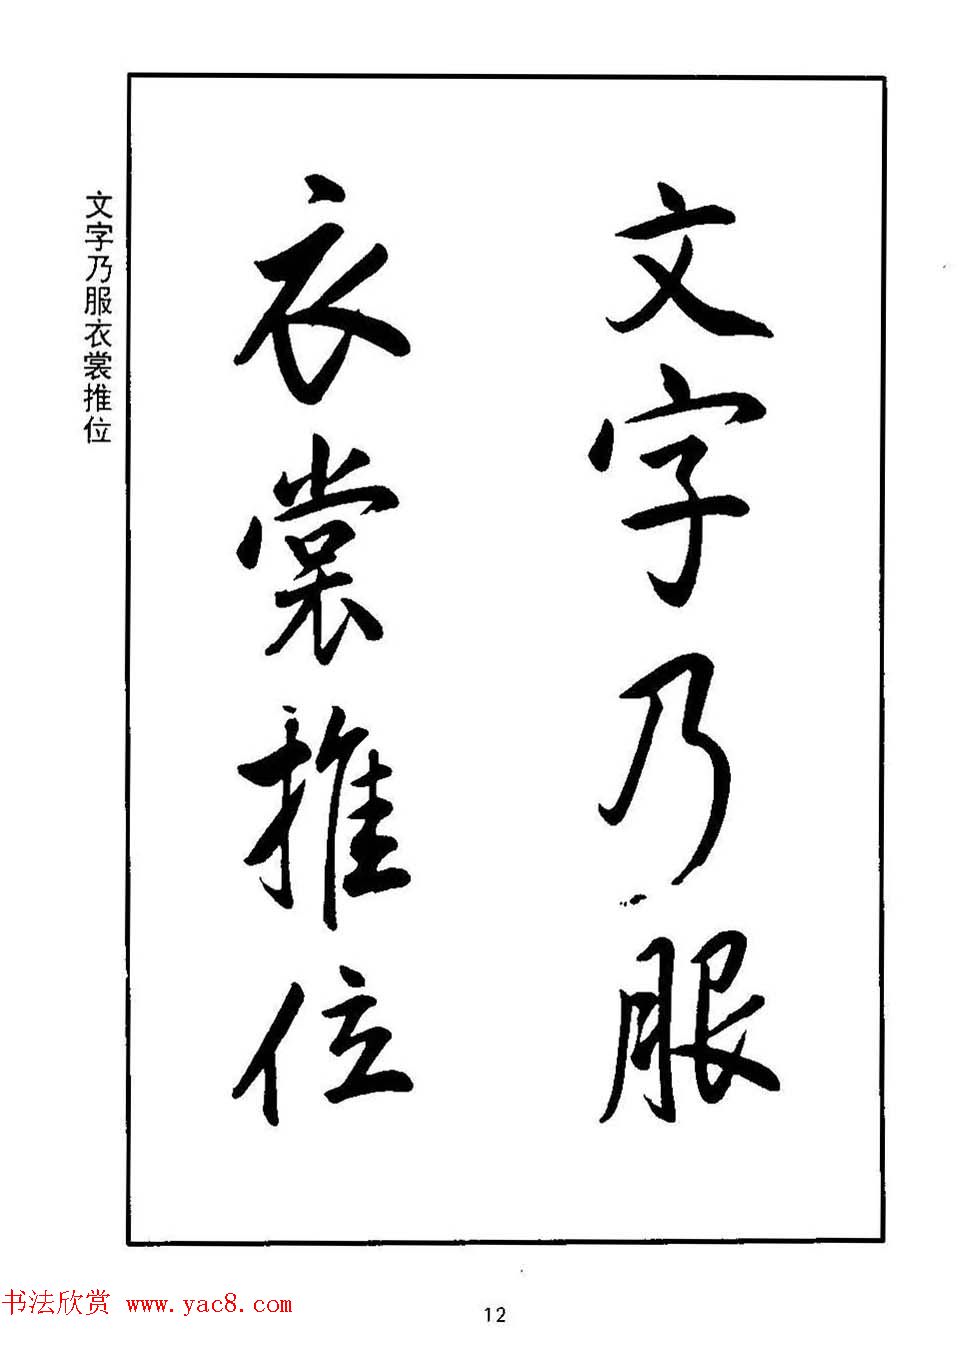 文字乃服
衣裳推位
文字乃服衣裳推位
书法欣赏 www.yac8.com
12